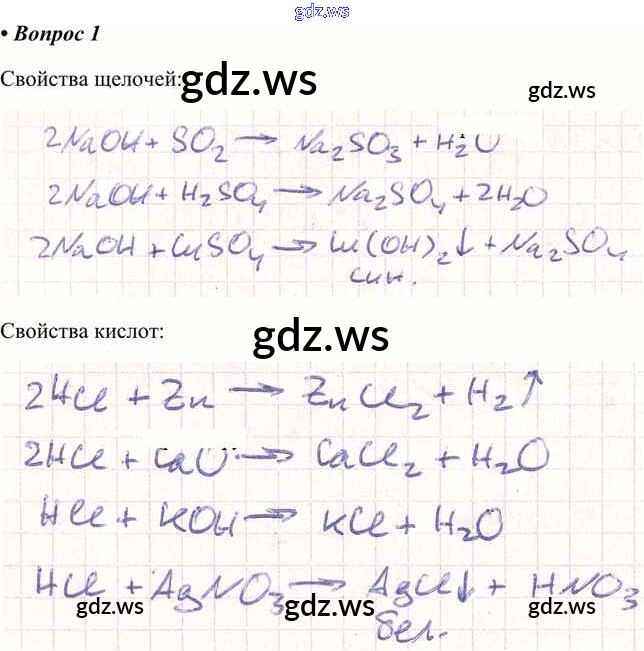 gdz.ws
• Вопрос 1
Свойства щелочей:
gdz.ws
gdz.ws
2NaOH + SO2 → Na2SO3 + H2O
2NaOH + H2SO4 → Na2SO4 + 2H2O
2NaOH + CuSO4 → Cu(OH)2↓ + Na2SO4
син.
Свойства кислот:
gdz.ws
gdz.ws
2HCl + Zn → ZnCl2 + H2↑
2HCl + CaO → CaCl2 + H2O
HCl + KOH → KCl + H2O
HCl + AgNO3 → AgCl↓ + HNO3
бел.
gdz.ws
gdz.ws
gdz.ws